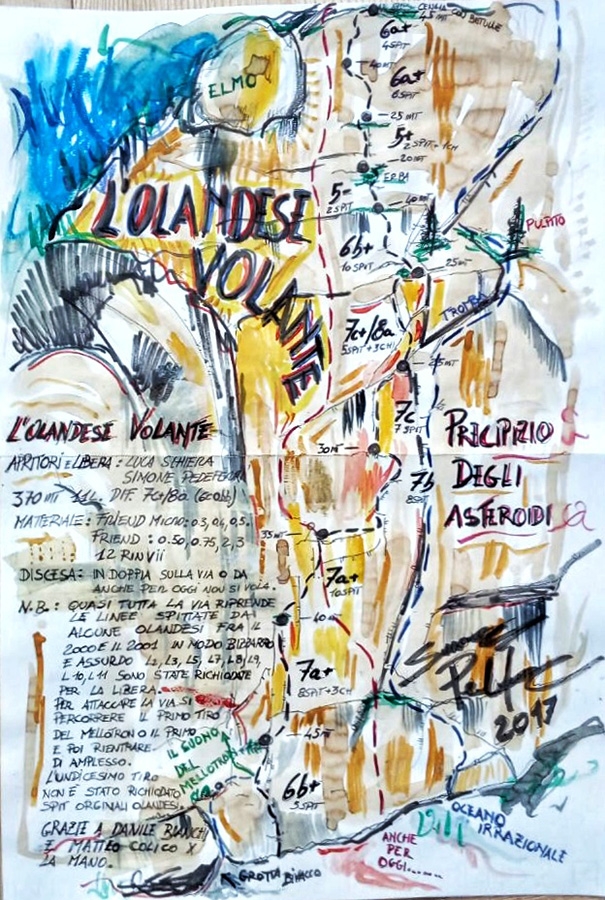 CENGIA CON BETULLE
45 MT
6a+
4 SPIT
40 MT
ELMO
6a+
6 SPIT
25 MT
5+
2 SPIT + 1 CH
20 MT
ERBA
5-
2 SPIT
40 MT
L'OLANDESE
VOLANTE
PULPITO
6b+
10 SPIT
25 MT
TROMBA
7c+/8a
5 SPIT + 3 CH
25 MT
7c
7 SPIT
L'OLANDESE VOLANTE
PRECIPIZIO
DEGLI
ASTEROIDI
APRITORI E LIBERA: LUCA SCHIERA
SIMONE PEDEFERRI
30 MT
7b
8 SPIT
370 MT 11 L. DIF. 7c+/8a (6c obbl)
MATERIALE: FRIEND MICRO: 0.3, 0.4, 0.5.
FRIEND: 0.50, 0.75, 2, 3
12 RINVII
35 MT
DISCESA: IN DOPPIA SULLA VIA O DA
ANCHE PER OGGI NON SI VOLA.
7a+
10 SPIT
N.B.: QUASI TUTTA LA VIA RIPRENDE
LE LINEE SPITTATE DAI
ALCUNE OLANDESI FRA IL
2000 E IL 2001 IN MODO BIZZARRO
E ASSURDO L2, L3, L5, L7, L8, L9,
L10, L11 SONO STATE RICHIODATE
PER LA LIBERA.
PER ATTACCARE LA VIA SI
PERCORRERE IL PRIMO TIRO
DEL MELLOTRON O IL PRIMO
E POI RIENTRARE.
DI AMPLESSO.
L'UNDICESIMO TIRO
NON È STATO RICHIODATO
SPIT ORGINALI OLANDESI.
40
7a+
8 SPIT + 3 CH
2017
45 MT
IL SUONO
DEL
MELLOTRON
6b+
5 SPIT
OCEANO
IRRAZIONALE
GRAZIE A DANILE BIANCHI
E MATTEO COLICO X
LA MANO.
ANCHE
PER
OGGI......
GROTTA BIVACCO